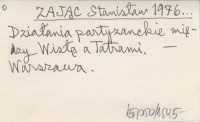 ZAJĄC Stanisław 1976...
Działania partyzanckie mię-
dzy Wisłą a Tatrami. —
Warszawa.